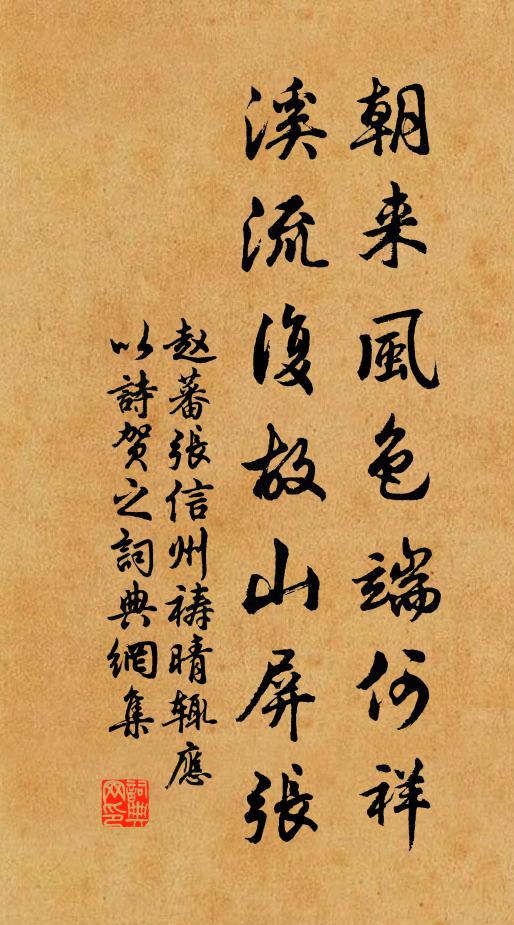 朝来風色端何祥
溪流復故山屏張
赵蕃張信州祷晴輒應
以詩贺之詞典網集
詞典
网印